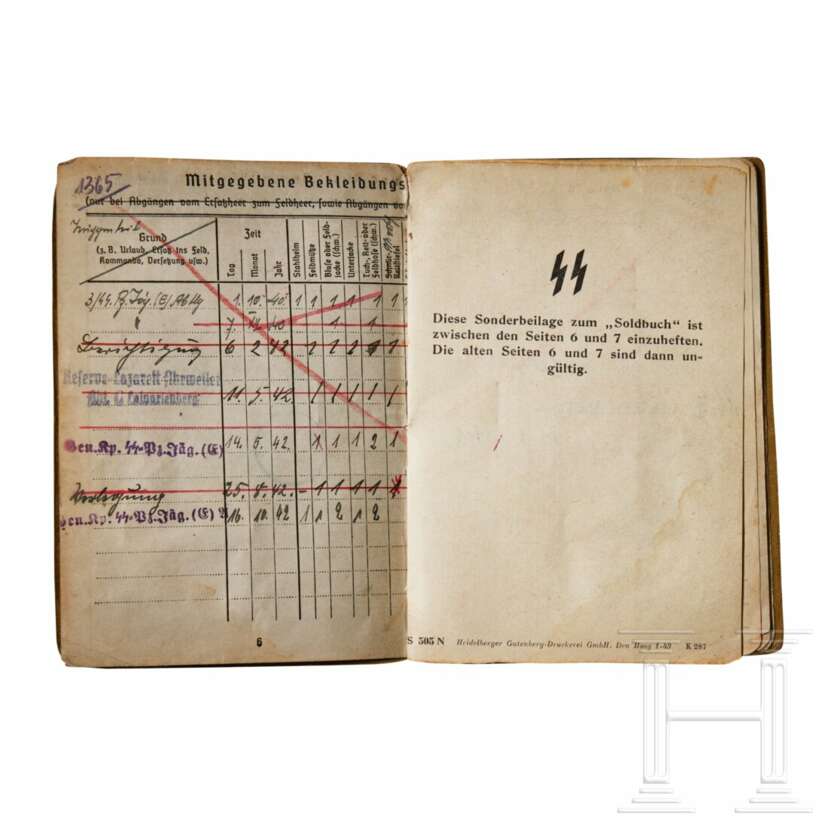 1365
Mitgegebene Bekleidungs
(nur bei Abgängen vom Ersatzheer zum Feldheer, sowie Abgängen
Grund
(z. B. Urlaub, Ersatz ins Feld,
Kommando, Versetzung usw.)
Zeit
Tag Monat Jahr
Stahlhelm
Feldmütze
Bluse oder Feld-
jacke (schw.)
Unterjacke
Tuch-, Reit- oder
Feldhose (schw.)
1. 10. 40. 1 1 1 1 1 1
7. 40 1 1
Berichtigung 6 2 42 1 1 1 1 1 1
Reserve-Lazarett Ahrweiler
11. 5. 42. 1 1 1 1 1 1
Gen.Kp. SS-Pz.Jäg.(E) 14. 5. 42. 1 1 1 2 1
Verlegung 25. 8. 42. - 1 1 1 1 1
Gen.Kp. SS-Pz.Jäg.(E) 16. 10. 42 1 1 2 1 2
6
SS
Diese Sonderbeilage zum „Soldbuch" ist
zwischen den Seiten 6 und 7 einzuheften.
Die alten Seiten 6 und 7 sind dann un-
gültig.
S 505 N Heidelberger Gutenberg-Druckerei GmbH. Den Haag 1-43 K 287
H